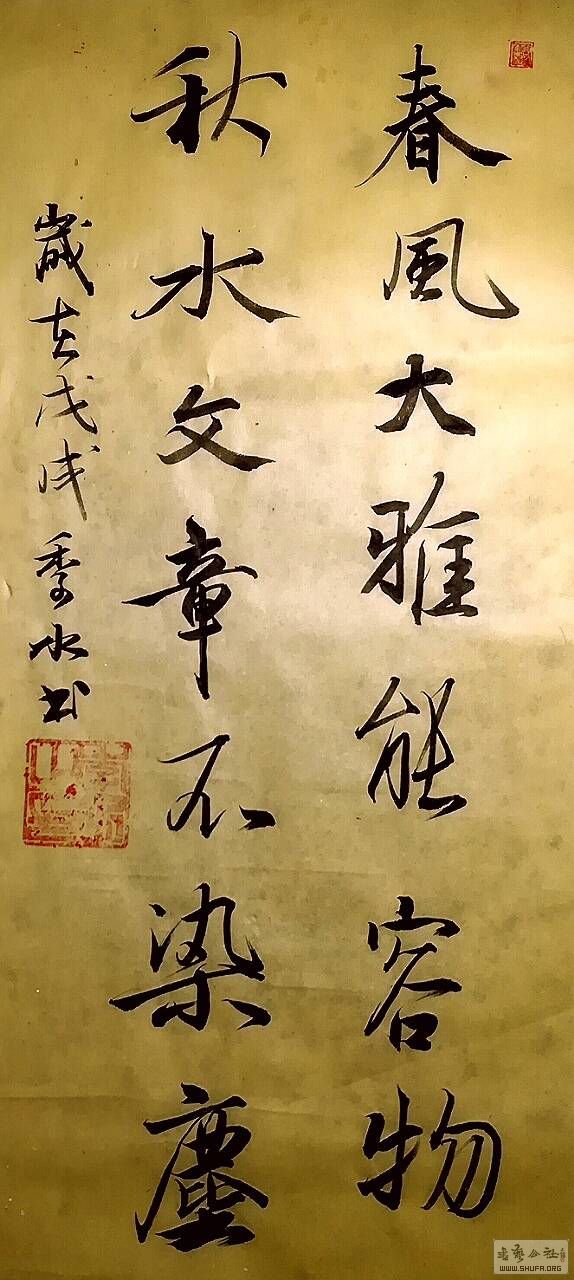 春風大雅能容物
秋水文章不染塵
歲在戊戌季水书
书艺公社
WWW.SHUFA.ORG